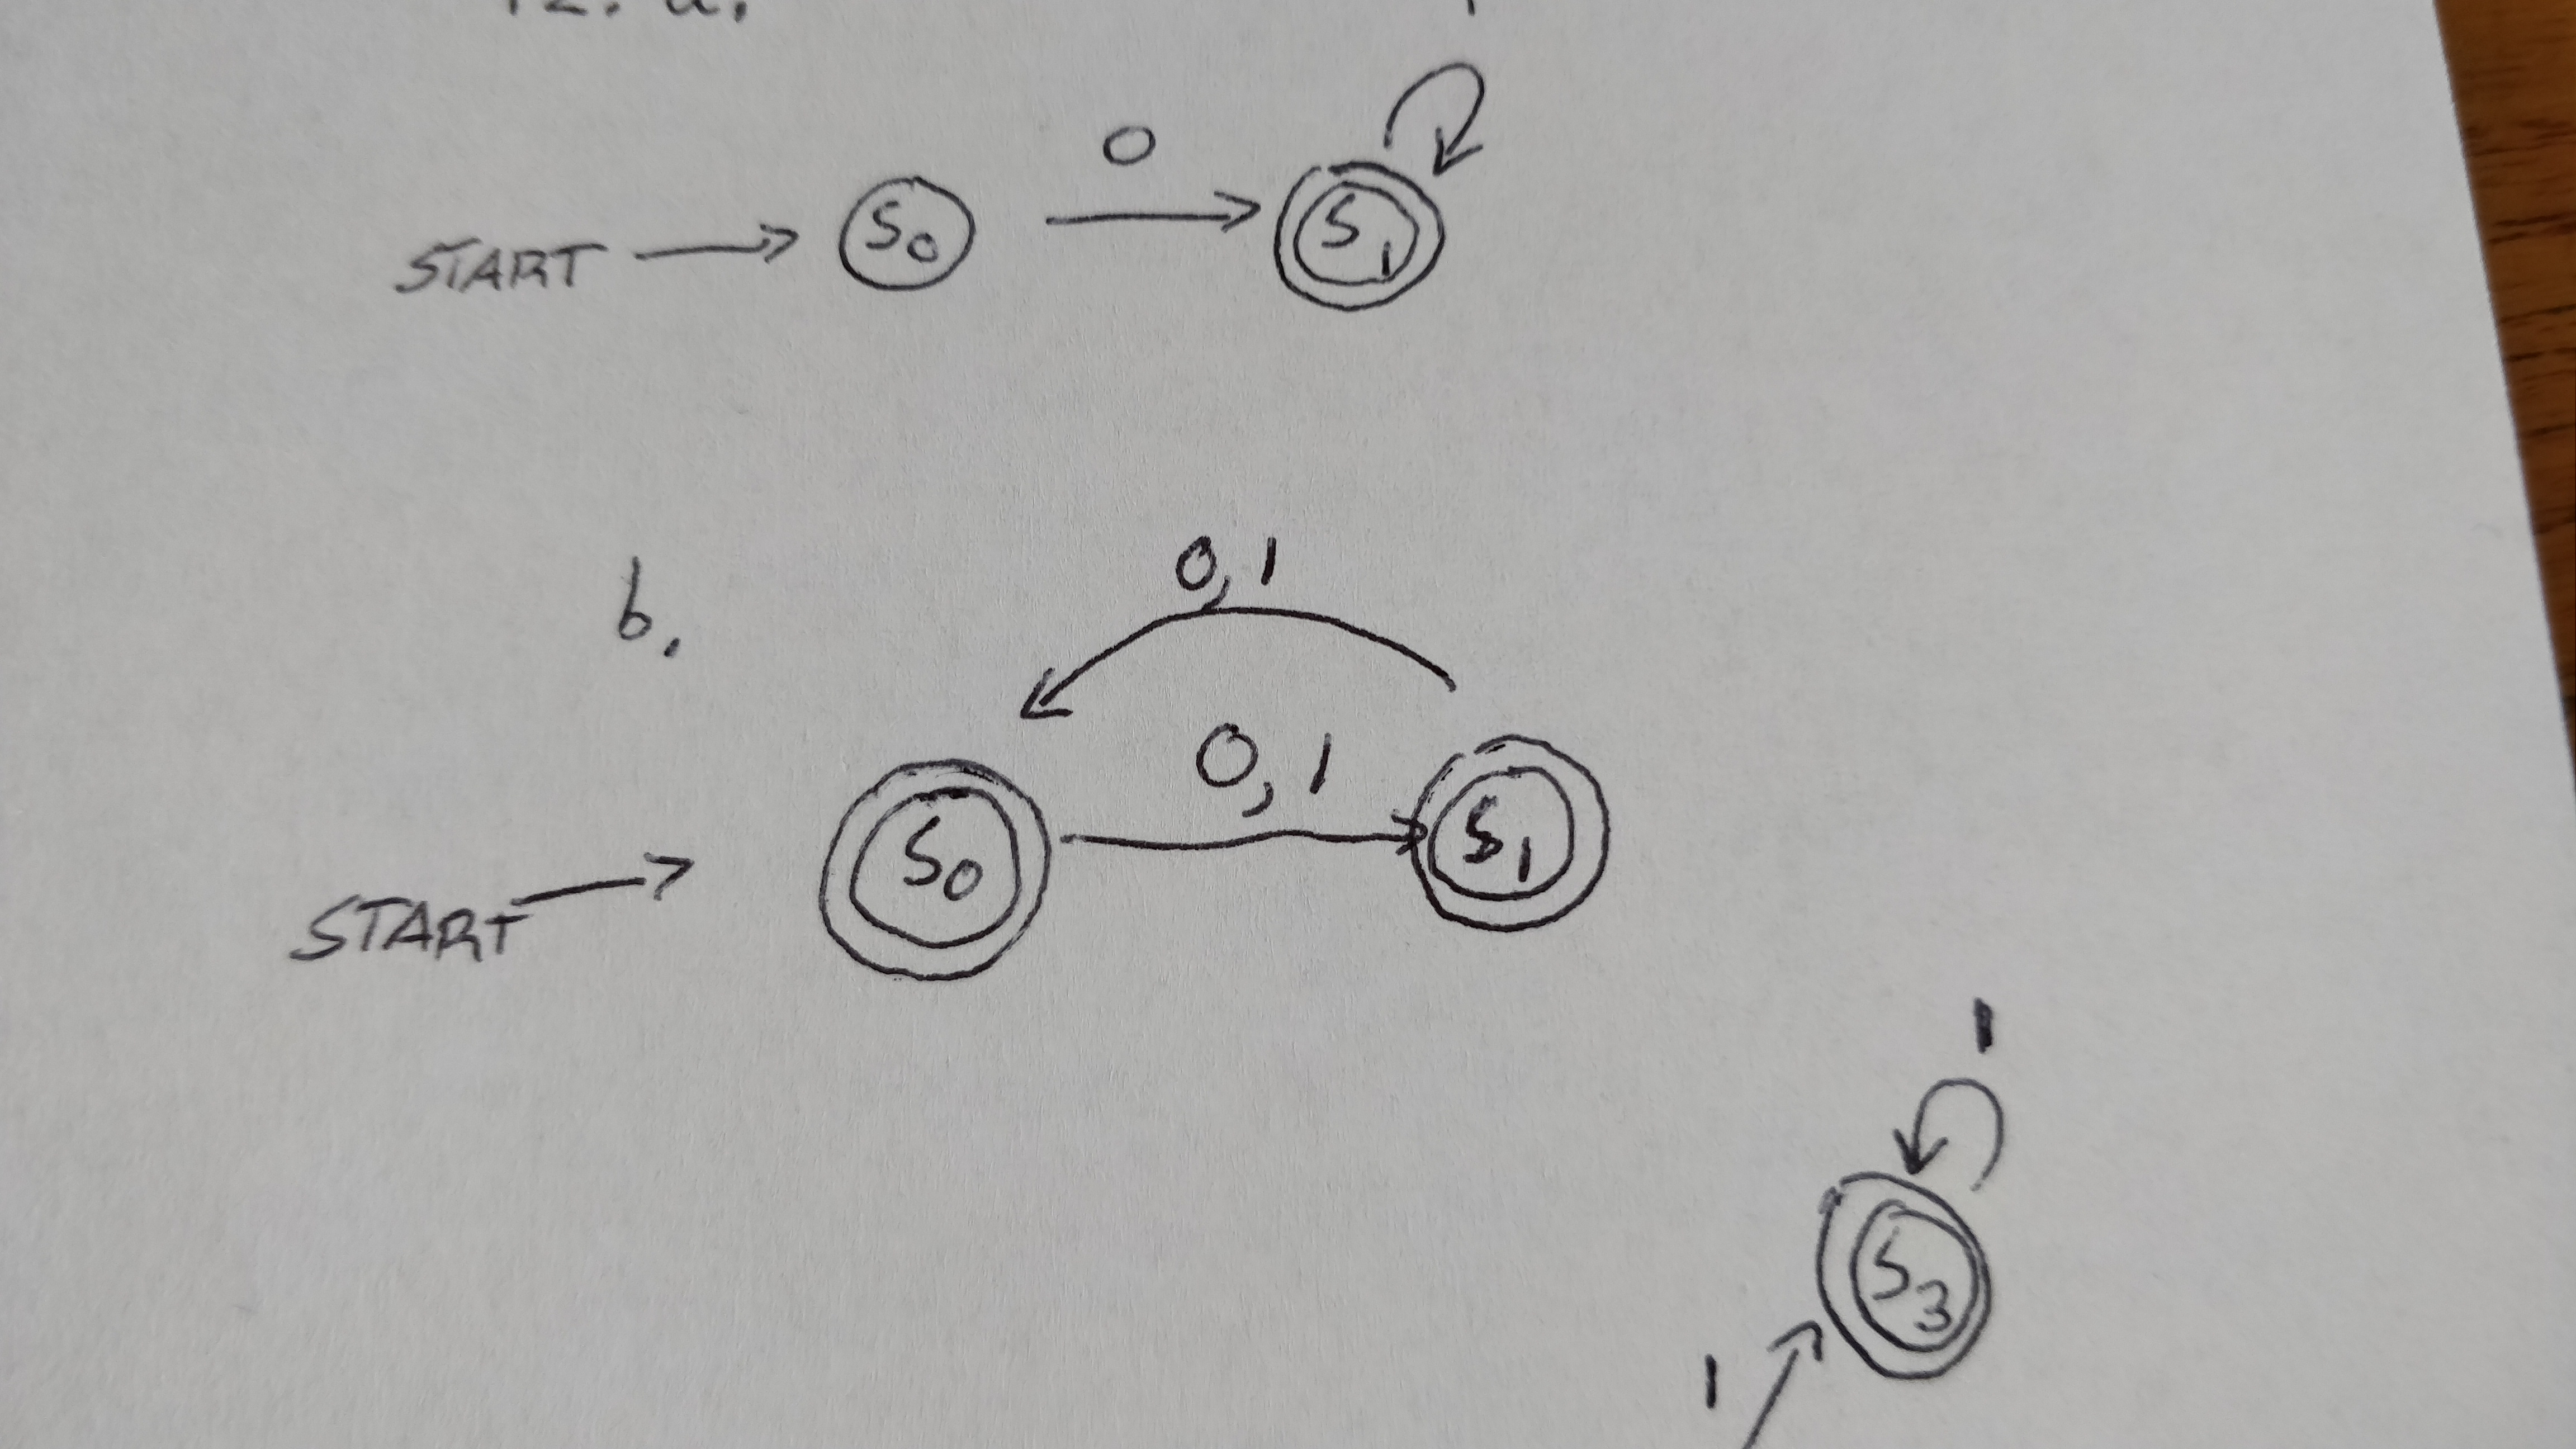 12. a.
0
START → S0 → S1
b.
0,1
0,1
START → S0 → S1
1
S3
1